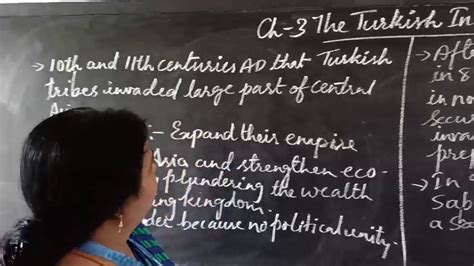 Ch-3 The Turkish In
→ 10th and 11th centuries AD that Turkish
tribes invaded large part of Central
:- Expand their empire
Asia and strengthen eco-
plundering the wealth
kingdom.
because no political unity.
→ Afte
in
in no
Secur
inva
prep
→ In
Sab
a